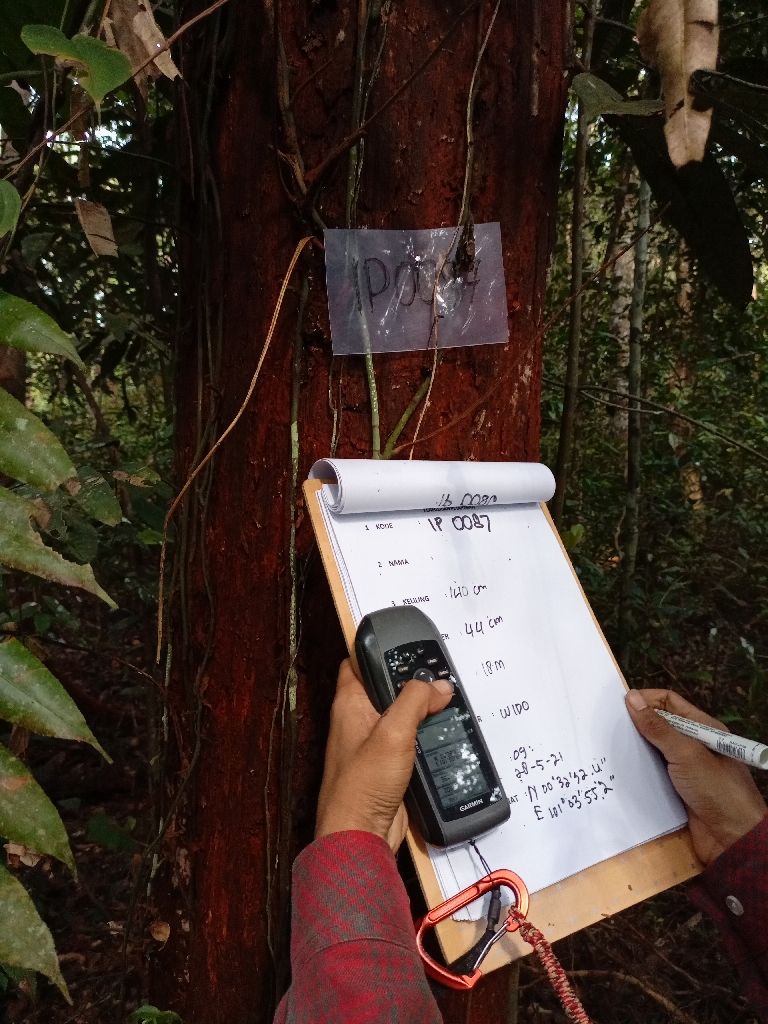 IP 0087
1 KODE IP 0087
2 NAMA
3 KELILING : 140 cm
: 44 cm
: 18 m
: WIDO
: 09:
28-5-21
: N 00°32'42.4"
E 101°03'55.2"
GARMIN